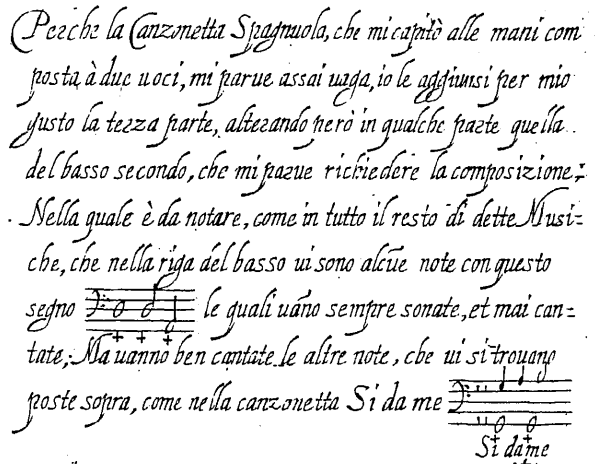 Perche la Canzonetta Spagnuola, che mi capitò alle mani com
posta à due uoci, mi parue assai uaga, io le aggiunsi per mio
gusto la terza parte, alterando però in qualche parte quella
del basso secondo, che mi parue richiedere la composizione.
Nella quale è da notare, come in tutto il resto di dette Musi=
che, che nella riga del basso ui sono alcūe note con questo
segno le quali uāno sempre sonate, et mai can=
tate, Ma uanno ben cantate le altre note, che ui si trouano
poste sopra, come nella canzonetta Si da me
Si da me